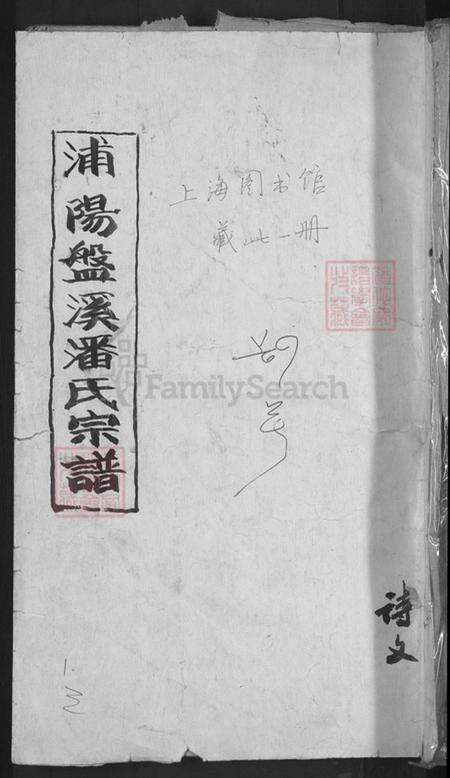 浦陽盤溪潘氏宗譜
上海图书馆
藏此一册
FamilySearch
诗文
1.